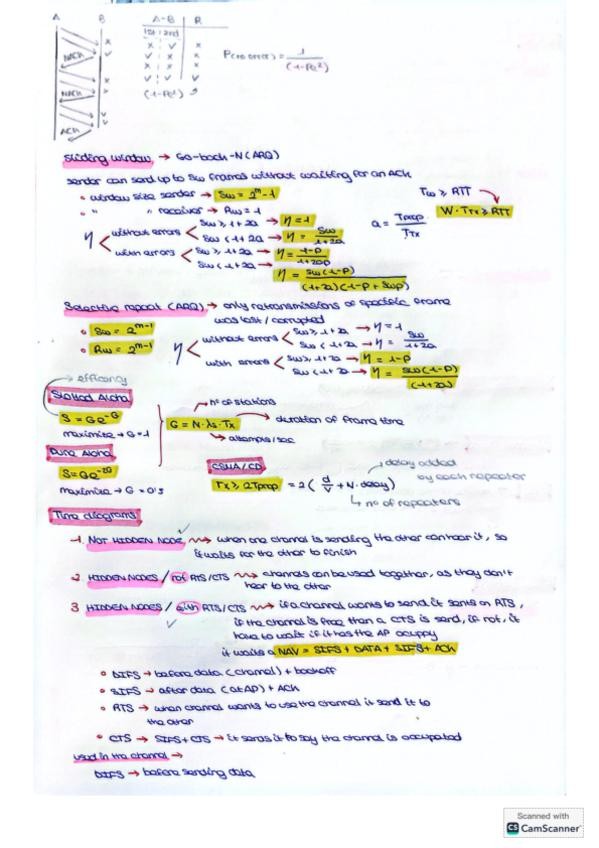 A B
A-B R
1st 2nd
NACK
NACK
ACK
(1-Pe²)
P(no error) = 1/(1-Pe²)
Sliding window → Go-back-N (ARQ)
sender can send up to Sw frames without waiting for an ACK
• window size sender → Sw = 2^m - 1
• " " receiver → Rw = 1
Tw ≥ RTT
W · Ttx ≥ RTT
a = Tprop/Ttx
η
without errors Sw ≥ 1+2a → η = 1
Sw < 1+2a → η = Sw/(1+2a)
with errors Sw ≥ 1+2a → η = (1-P)/(1+2aP)
Sw < 1+2a → η = Sw(1-P)/((1+2a)(1-P+SwP))
Selective repeat (ARQ) → only retransmissions of specific frame
was lost / corrupted
• Sw = 2^(m-1)
• Rw = 2^(m-1)
η
without errors Sw ≥ 1+2a → η = 1
Sw < 1+2a → η = Sw/(1+2a)
with errors Sw ≥ 1+2a → η = 1-P
Sw < 1+2a → η = Sw(1-P)/(1+2a)
→ efficency
Slotted Aloha
S = Ge^-G
maximize → G = 1
Pure Aloha
S = Ge^-2G
maximize → G = 0'5
→ nº of stations
G = N · λs · Tx → duration of frame time
→ attemps/sec
CSMA/CD
Tx ≥ 2Tprop = 2(d/v + N · delay)
→ delay added
by each repeater
↳ nº of repeaters
Time diagrams
1. NOT HIDDEN NODE → when one channel is sending the other can hear it, so
it waits for the other to finish
2. HIDDEN NODES / not RTS/CTS → channels can be used together, as they don't
hear to the other
3 HIDDEN NODES / with RTS/CTS → if a channel wants to send it sents an RTS,
if the channel is free than a CTS is send, if not, it
have to wait if it has the AP occupy
it waits a NAV = SIFS + DATA + SIFS + ACK
• DIFS → before data (channel) + backoff
• SIFS → after data (at AP) + ACK
• RTS → when channel wants to use the channel it send it to
the other
• CTS → SIFS + CTS → it sends it to say the channel is occupated
used in the channel →
DIFS → before sending data
Scanned with
CS CamScanner